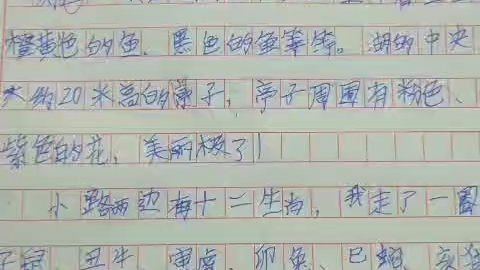 橙黄色的鱼、黑色的鱼等等。湖的中央
大约20米高的亭子，亭子周围有粉色、
紫色的花，美丽极了！
小路两边有十二生肖，我走了一圈
子鼠、丑牛、寅虎、卯兔、巳蛇、亥猪